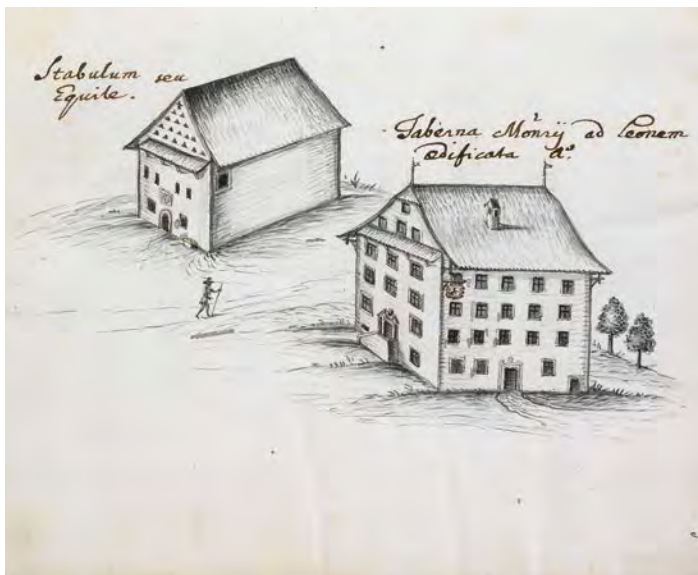 Stabulum seu
Equile.
Taberna Monrij ad Leonem
ædificata Aº.